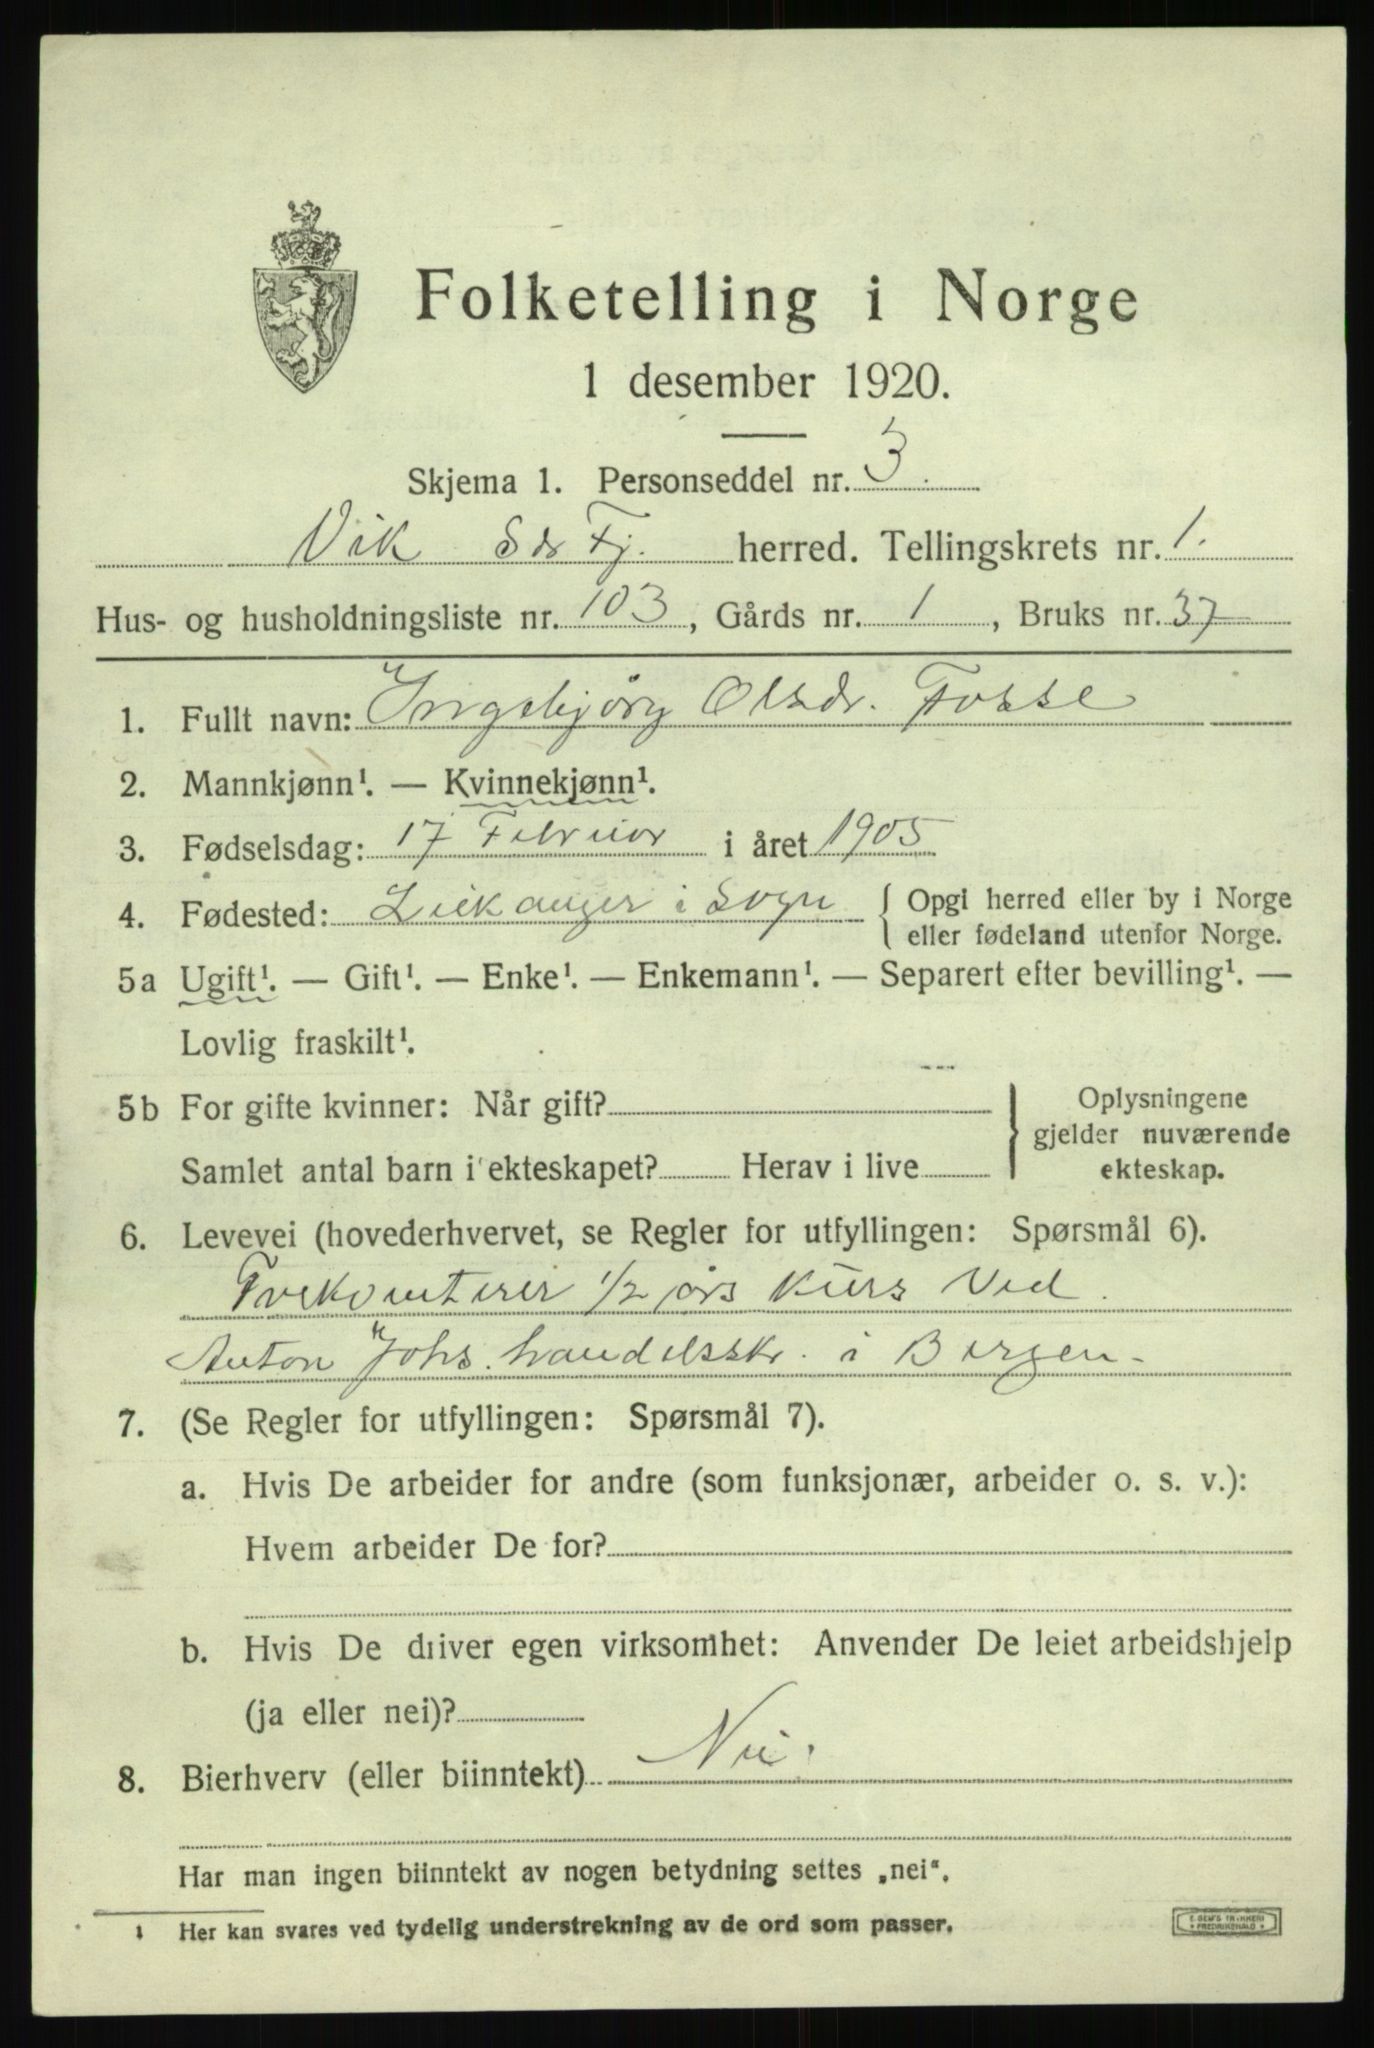 Folketelling i Norge
1 desember 1920.
Skjema 1. Personseddel nr. 3.
Vik Sdr Fj. herred. Tellingskrets nr. 1.
Hus- og husholdningsliste nr. 103, Gårds nr. 1, Bruks nr. 37
1. Fullt navn: Ingebjörg Olsdr. Fosse
2. Mannkjønn¹. — Kvinnekjønn¹.
3. Fødselsdag: 17 Februar i året 1905
4. Fødested: Leikanger i Sogn { Opgi herred eller by i Norge
eller fødeland utenfor Norge.
5a Ugift¹. — Gift¹. — Enke¹. — Enkemann¹. — Separert efter bevilling¹. —
Lovlig fraskilt¹.
5b For gifte kvinner: Når gift?
Samlet antal barn i ekteskapet? Herav i live
} Oplysningene
gjelder nuværende
ekteskap.
6. Levevei (hovederhvervet, se Regler for utfyllingen: Spørsmål 6).
Frekventerer 1/2 års Kurs Ved
Anton Johs. handelssk. i Bergen.
7. (Se Regler for utfyllingen: Spørsmål 7).
a. Hvis De arbeider for andre (som funksjonær, arbeider o. s. v.):
Hvem arbeider De for?
b. Hvis De driver egen virksomhet: Anvender De leiet arbeidshjelp
(ja eller nei)?
8. Bierhverv (eller biinntekt) Nei.
Har man ingen biinntekt av nogen betydning settes „nei“.
¹ Her kan svares ved tydelig understrekning av de ord som passer.
E. SEM'S TRYKKERI
FREDRIKSHALD